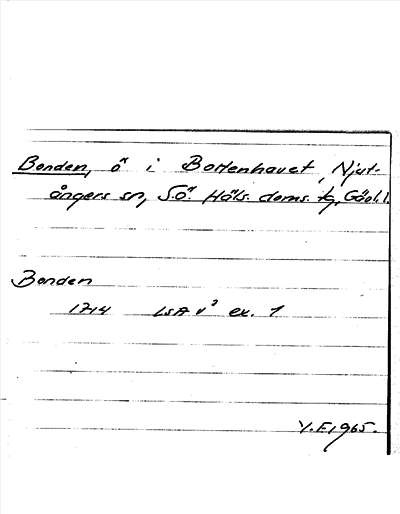 Bonden, ö i Bottenhavet, Njut-
ångers sn, S.ö. Häls. doms. tg, Gävl. l.
Bonden
1714 LSA V³ ex. 1
Y.F. 1965.